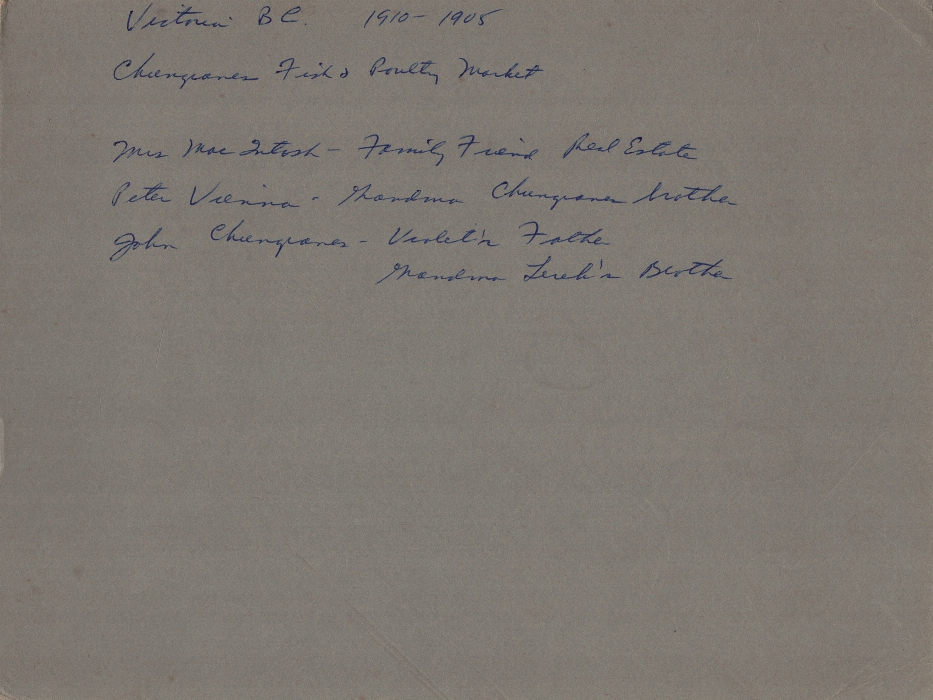 Victoria B C. 1910 - 1905
Chungranes Fish & Poultry Market
Mrs Mac Intosh - Family Friend Real Estate
Peter Vienna - Grandma Chungranes brother
John Chungranes - Violet's Father
Grandma Brother